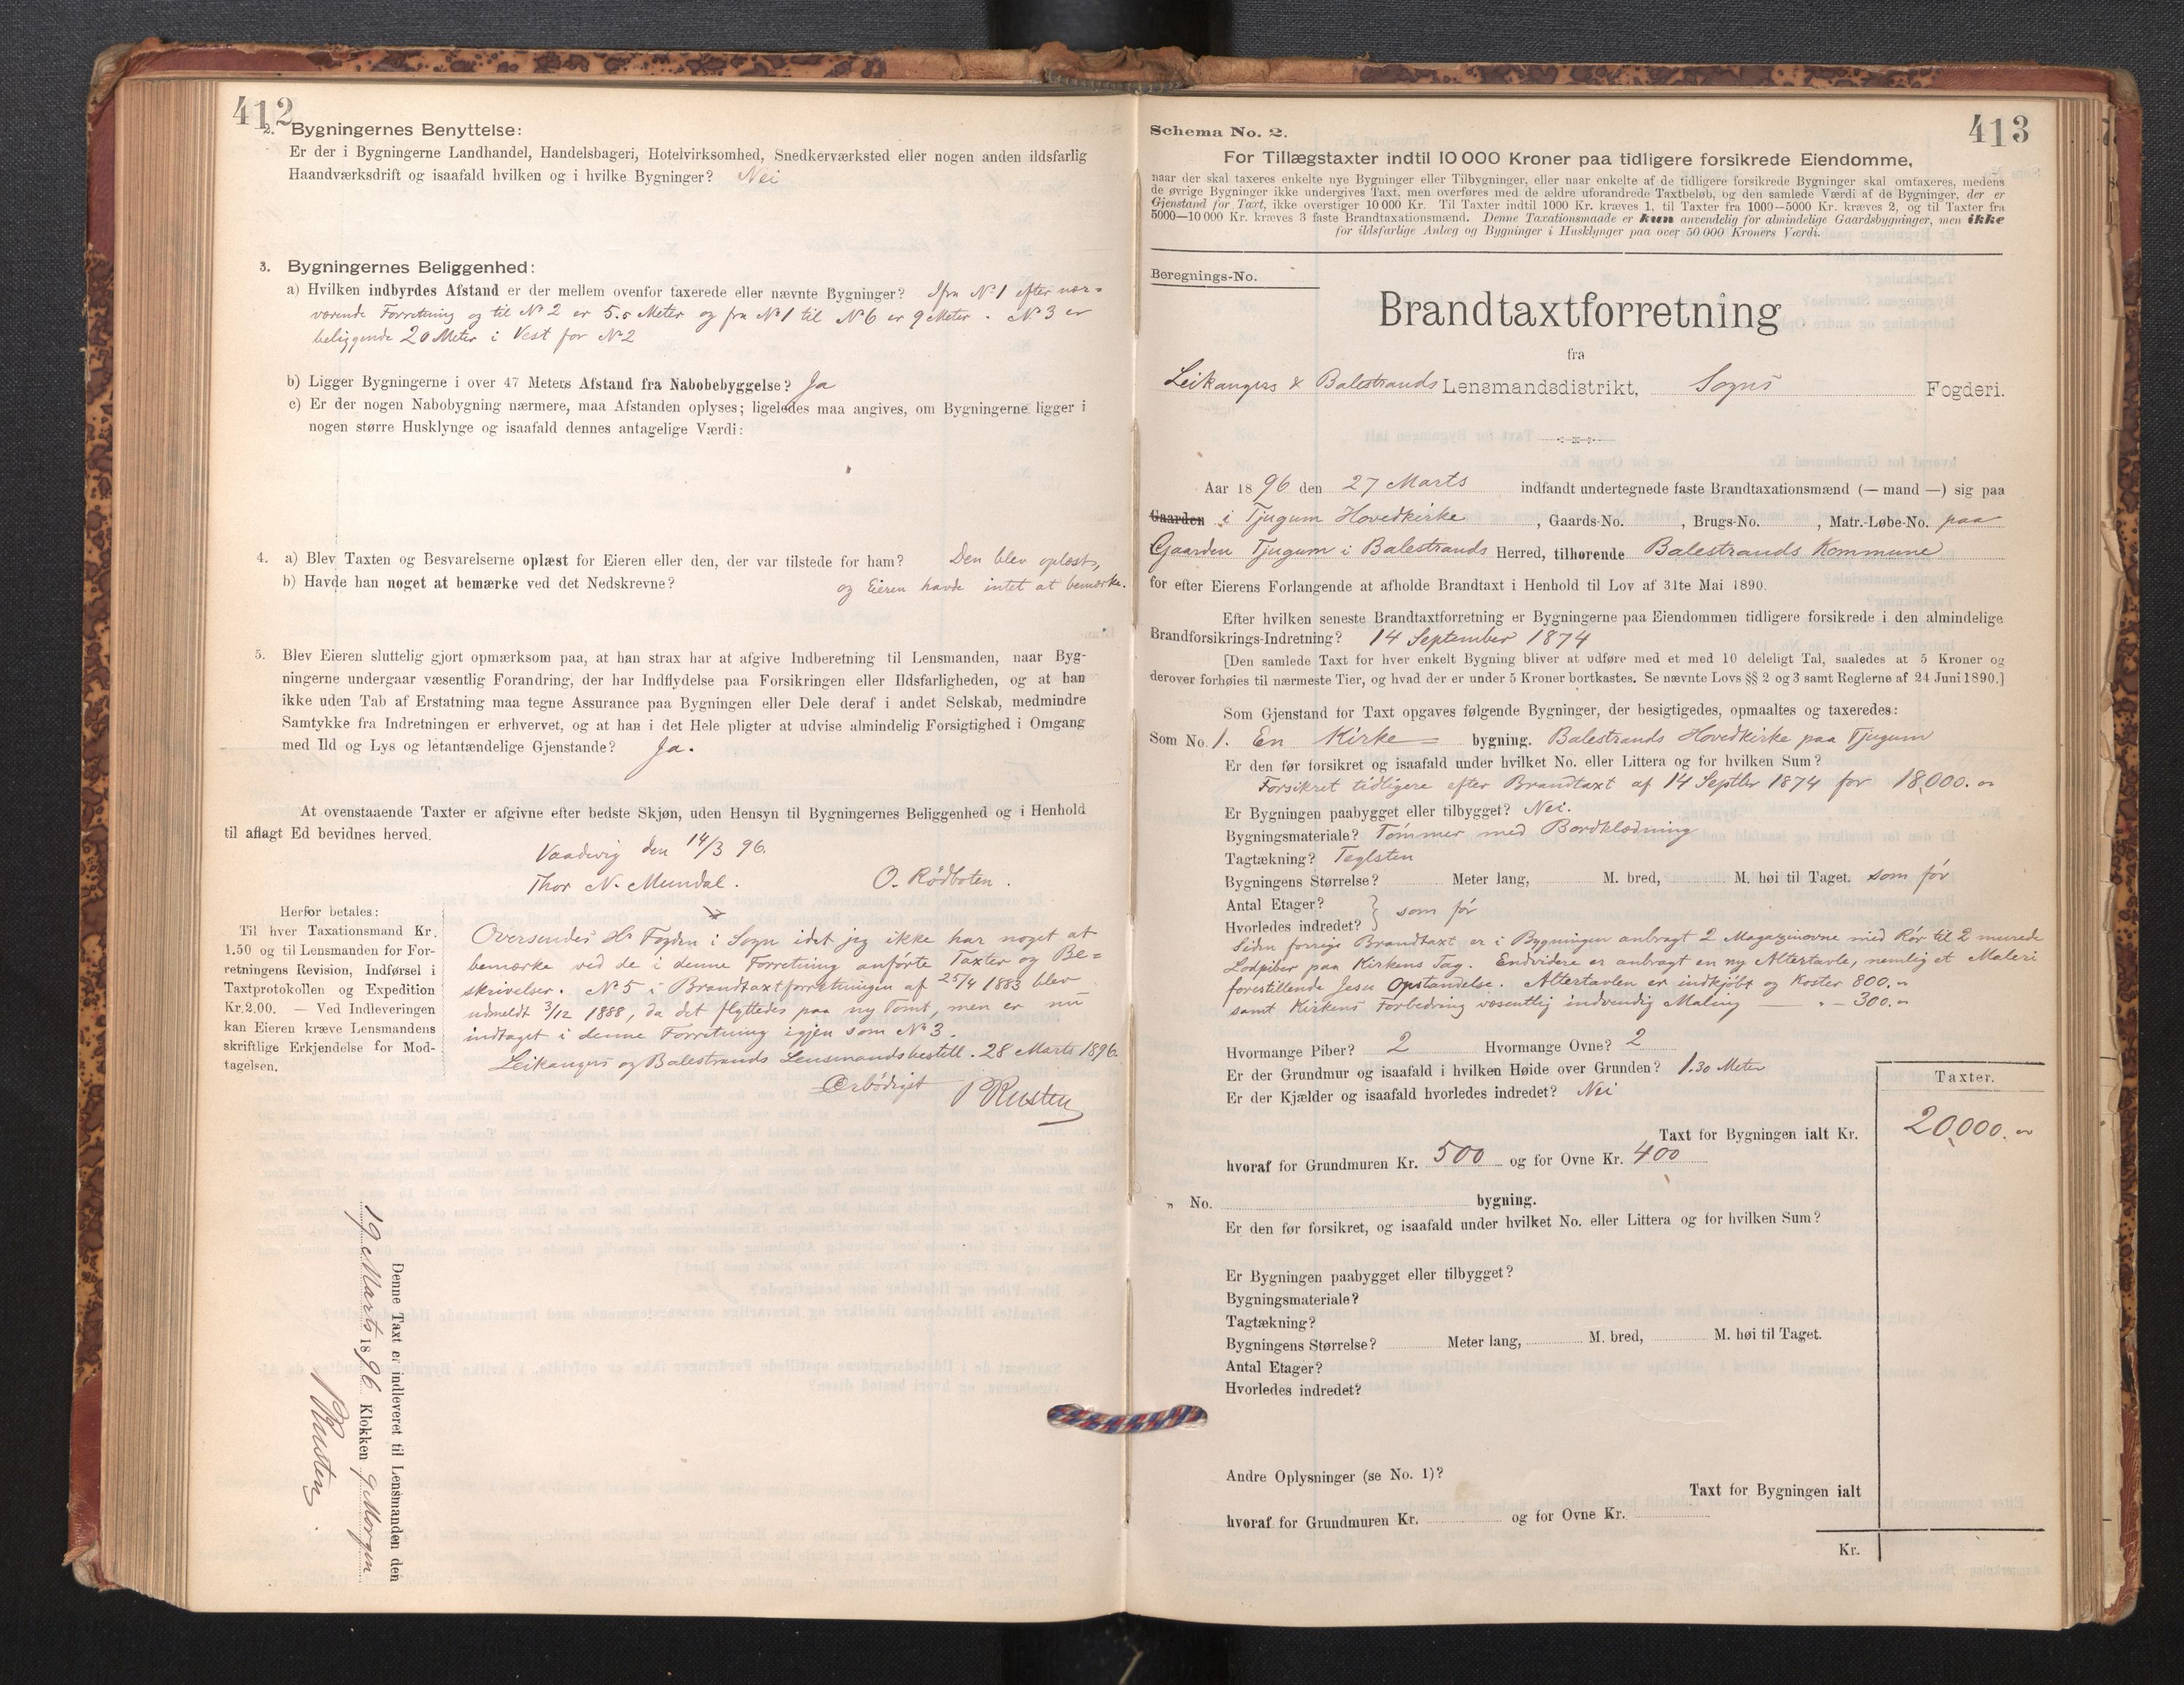 412
2. Bygningernes Benyttelse:
Er der i Bygningerne Landhandel, Handelsbageri, Hotelvirksomhed, Snedkerværksted eller nogen anden ildsfarlig
Haandværksdrift og isaafald hvilken og i hvilke Bygninger? Nei
3. Bygningernes Beliggenhed:
a) Hvilken indbyrdes Afstand er der mellem ovenfor taxerede eller nævnte Bygninger? Ifra No 1 efter nær=
værende Forretning og til No 2 er 5.5 Meter og fra No 1 til No 6 er 9 Meter. No 3 er
beliggende 20 Meter i Vest for No 2
b) Ligger Bygningerne i over 47 Meters Afstand fra Nabobebyggelse? Ja
c) Er der nogen Nabobygning nærmere, maa Afstanden oplyses; ligeledes maa angives, om Bygningerne ligger i
nogen større Husklynge og isaafald dennes antagelige Værdi:
4. a) Blev Taxten og Besvarelserne oplæst for Eieren eller den, der var tilstede for ham? Den blev oplæst,
b) Havde han noget at bemærke ved det Nedskrevne? og Eieren havde intet at bemærke.
5. Blev Eieren sluttelig gjort opmærksom paa, at han strax har at afgive Indberetning til Lensmanden, naar Byg-
ningerne undergaar væsentlig Forandring, der har Indflydelse paa Forsikringen eller Ildsfarligheden, og at han
ikke uden Tab af Erstatning maa tegne Assurance paa Bygningen eller Dele deraf i andet Selskab, medmindre
Samtykke fra Indretningen er erhvervet, og at han i det Hele pligter at udvise almindelig Forsigtighed i Omgang
med Ild og Lys og letantændelige Gjenstande? Ja.
At ovenstaaende Taxter er afgivne efter bedste Skjøn, uden Hensyn til Bygningernes Beliggenhed og i Henhold
til aflagt Ed bevidnes herved.
den 14/3 96.
Thor N. Mundal. O. Rødboten.
Herfor betales:
Til hver Taxationsmand Kr.
1.50 og til Lensmanden for For-
retningens Revision, Indførsel i
Taxtprotokollen og Expedition
Kr. 2.00. — Ved Indleveringen
kan Eieren kræve Lensmandens
skriftlige Erkjendelse for Mod-
tagelsen.
Oversendes Hr Fogden i Sogn idet jeg ikke har noget at
bemærke ved de i denne Forretning anførte Taxter og Be=
skrivelser. No 5 i Brandtaxtforretningen af 25/4 1883 blev
udmeldt 3/12 1888, da det flyttedes paa ny Tomt, men er nu
indtaget i denne Forretning igjen som No 3.
Leikangers og Balestrands Lensmandsbestill. 28 Marts 1896.
Ærbødigst
P Rusten
Denne Taxt er indleveret til Lensmanden den
19 Marts 1896 Klokken 9 Morgen
P Rusten
413
Schema No. 2.
For Tillægstaxter indtil 10 000 Kroner paa tidligere forsikrede Eiendomme,
naar der skal taxeres enkelte nye Bygninger eller Tilbygninger, eller naar enkelte af de tidligere forsikrede Bygninger skal omtaxeres, medens
de øvrige Bygninger ikke undergives Taxt, men overføres med de ældre uforandrede Taxtbeløb, og den samlede Værdi af de Bygninger, der er
Gjenstand for Taxt, ikke overstiger 10 000 Kr. Til Taxter indtil 1000 Kr. kræves 1, til Taxter fra 1000—5000 Kr. kræves 2, og til Taxter fra
5000—10 000 Kr. kræves 3 faste Brandtaxationsmænd. Denne Taxationsmaade er kun anvendelig for almindelige Gaardsbygninger, men ikke
for ildsfarlige Anlæg og Bygninger i Husklynger paa over 50 000 Kroners Værdi.
Beregnings-No.
Brandtaxtforretning
fra
Leikangers & Balestrands Lensmandsdistrikt, Sogns Fogderi.
Aar 1896 den 27 Marts indfandt undertegnede faste Brandtaxationsmænd (— mand —) sig paa
Gaarden i Tjugum Hovedkirke, Gaards-No. , Brugs-No. , Matr.-Løbe-No. paa
Gaarden Tjugum i Balestrands Herred, tilhørende Balestrands Kommune
for efter Eierens Forlangende at afholde Brandtaxt i Henhold til Lov af 31te Mai 1890.
Efter hvilken seneste Brandtaxtforretning er Bygningerne paa Eiendommen tidligere forsikrede i den almindelige
Brandforsikrings-Indretning? 14 September 1874
[Den samlede Taxt for hver enkelt Bygning bliver at udføre med et med 10 deleligt Tal, saaledes at 5 Kroner og
derover forhøies til nærmeste Tier, og hvad der er under 5 Kroner bortkastes. Se nævnte Lovs §§ 2 og 3 samt Reglerne af 24 Juni 1890.]
Som Gjenstand for Taxt opgaves følgende Bygninger, der besigtigedes, opmaaltes og taxeredes:
Som No. 1. En Kirke= bygning. Balestrands Hovedkirke paa Tjugum
Er den før forsikret og isaafald under hvilket No. eller Littera og for hvilken Sum?
Forsikret tidligere efter Brandtaxt af 14 Septbr 1874 for 18,000.
Er Bygningen paabygget eller tilbygget? Nei.
Bygningsmateriale? Tømmer med Bordklædning
Tagtækning? Teglsten
Bygningens Størrelse? Meter lang, M. bred, M. høi til Taget. som før
Antal Etager?
Hvorledes indredet? } som før
Siden forrige Brandtaxt er i Bygningen anbragt 2 Magazinovne med Rør til 2 murede
Lodpiber paa Kirkens Tag. Endvidere er anbragt en ny Altertavle, nemlig et Maleri
forestillende Jesu Opstandelse. Altertavlen er indkjøbt og koster 800.
samt Kirkens Forbedring væsentlig indvendig Maling — " — 300.
Hvormange Piber? 2 Hvormange Ovne? 2
Er der Grundmur og isaafald i hvilken Høide over Grunden? 1.30 Meter
Er der Kjælder og isaafald hvorledes indredet? Nei
Taxter.
Taxt for Bygningen ialt Kr. 20,000.
hvoraf for Grundmuren Kr. 500 og for Ovne Kr. 400
" No. bygning.
Er den før forsikret, og isaafald under hvilket No. eller Littera og for hvilken Sum?
Er Bygningen paabygget eller tilbygget?
Bygningsmateriale?
Tagtækning?
Bygningens Størrelse? Meter lang, M. bred, M. høi til Taget.
Antal Etager?
Hvorledes indredet?
Andre Oplysninger (se No. 1)?
Taxt for Bygningen ialt
hvoraf for Grundmuren Kr. og for Ovne Kr.
Kr.